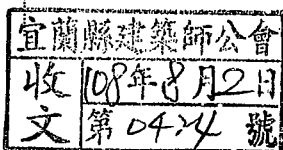 宜蘭縣建築師公會
收文
108年8月2日
第0424號